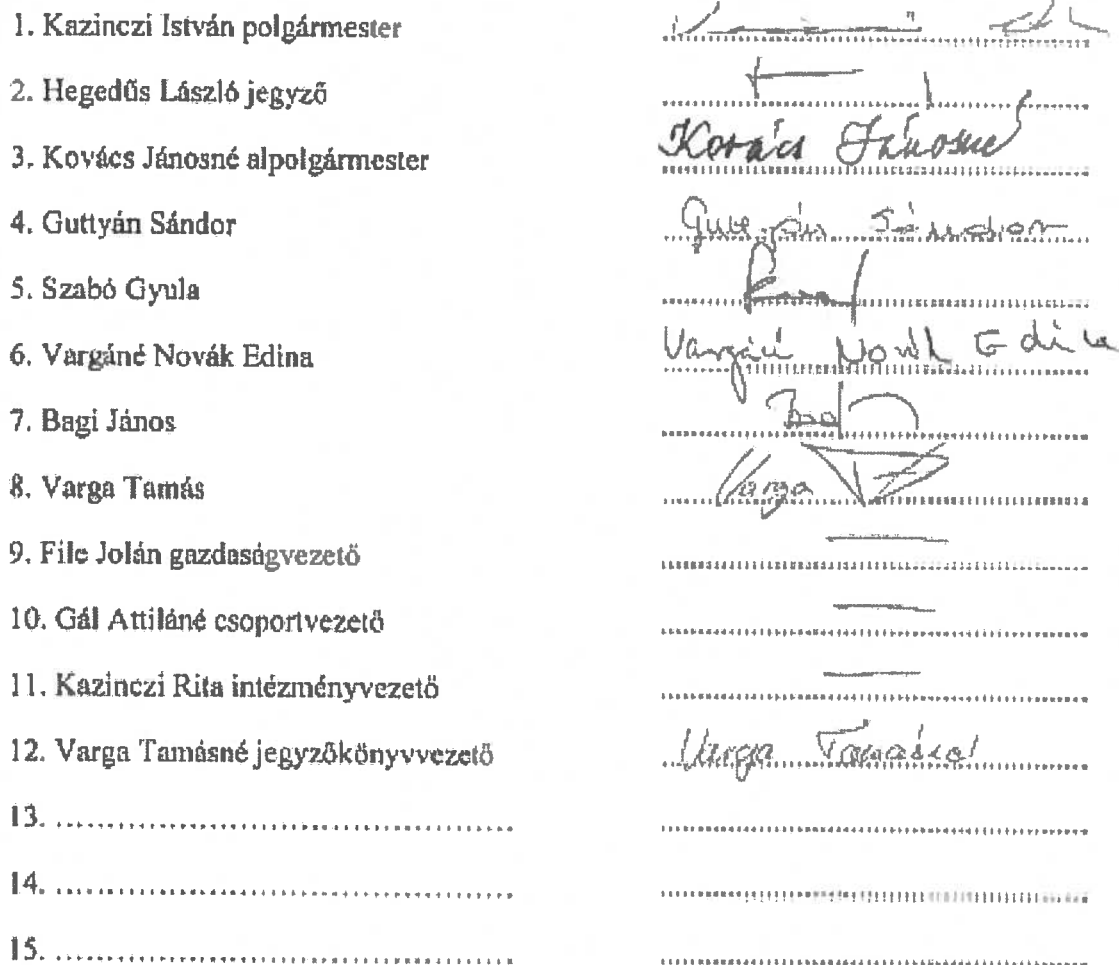 1. Kazinczi István polgármester
2. Hegedűs László jegyző
3. Kovács Jánosné alpolgármester Kovács Jánosné
4. Guttyán Sándor Guttyán Sándor
5. Szabó Gyula
6. Vargáné Novák Edina Vargáné Novák Edina
7. Bagi János
8. Varga Tamás Varga
9. File Jolán gazdaságvezető —
10. Gál Attiláné csoportvezető —
11. Kazinczi Rita intézményvezető —
12. Varga Tamásné jegyzőkönyvvezető Varga Tamásné
13. ..........................................
14. ..........................................
15. ..........................................